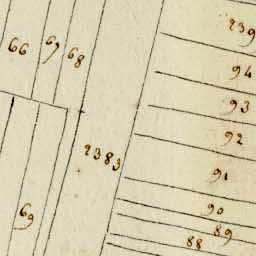 239
66
67
68
94
93
92
2383
91
69
90
89
88